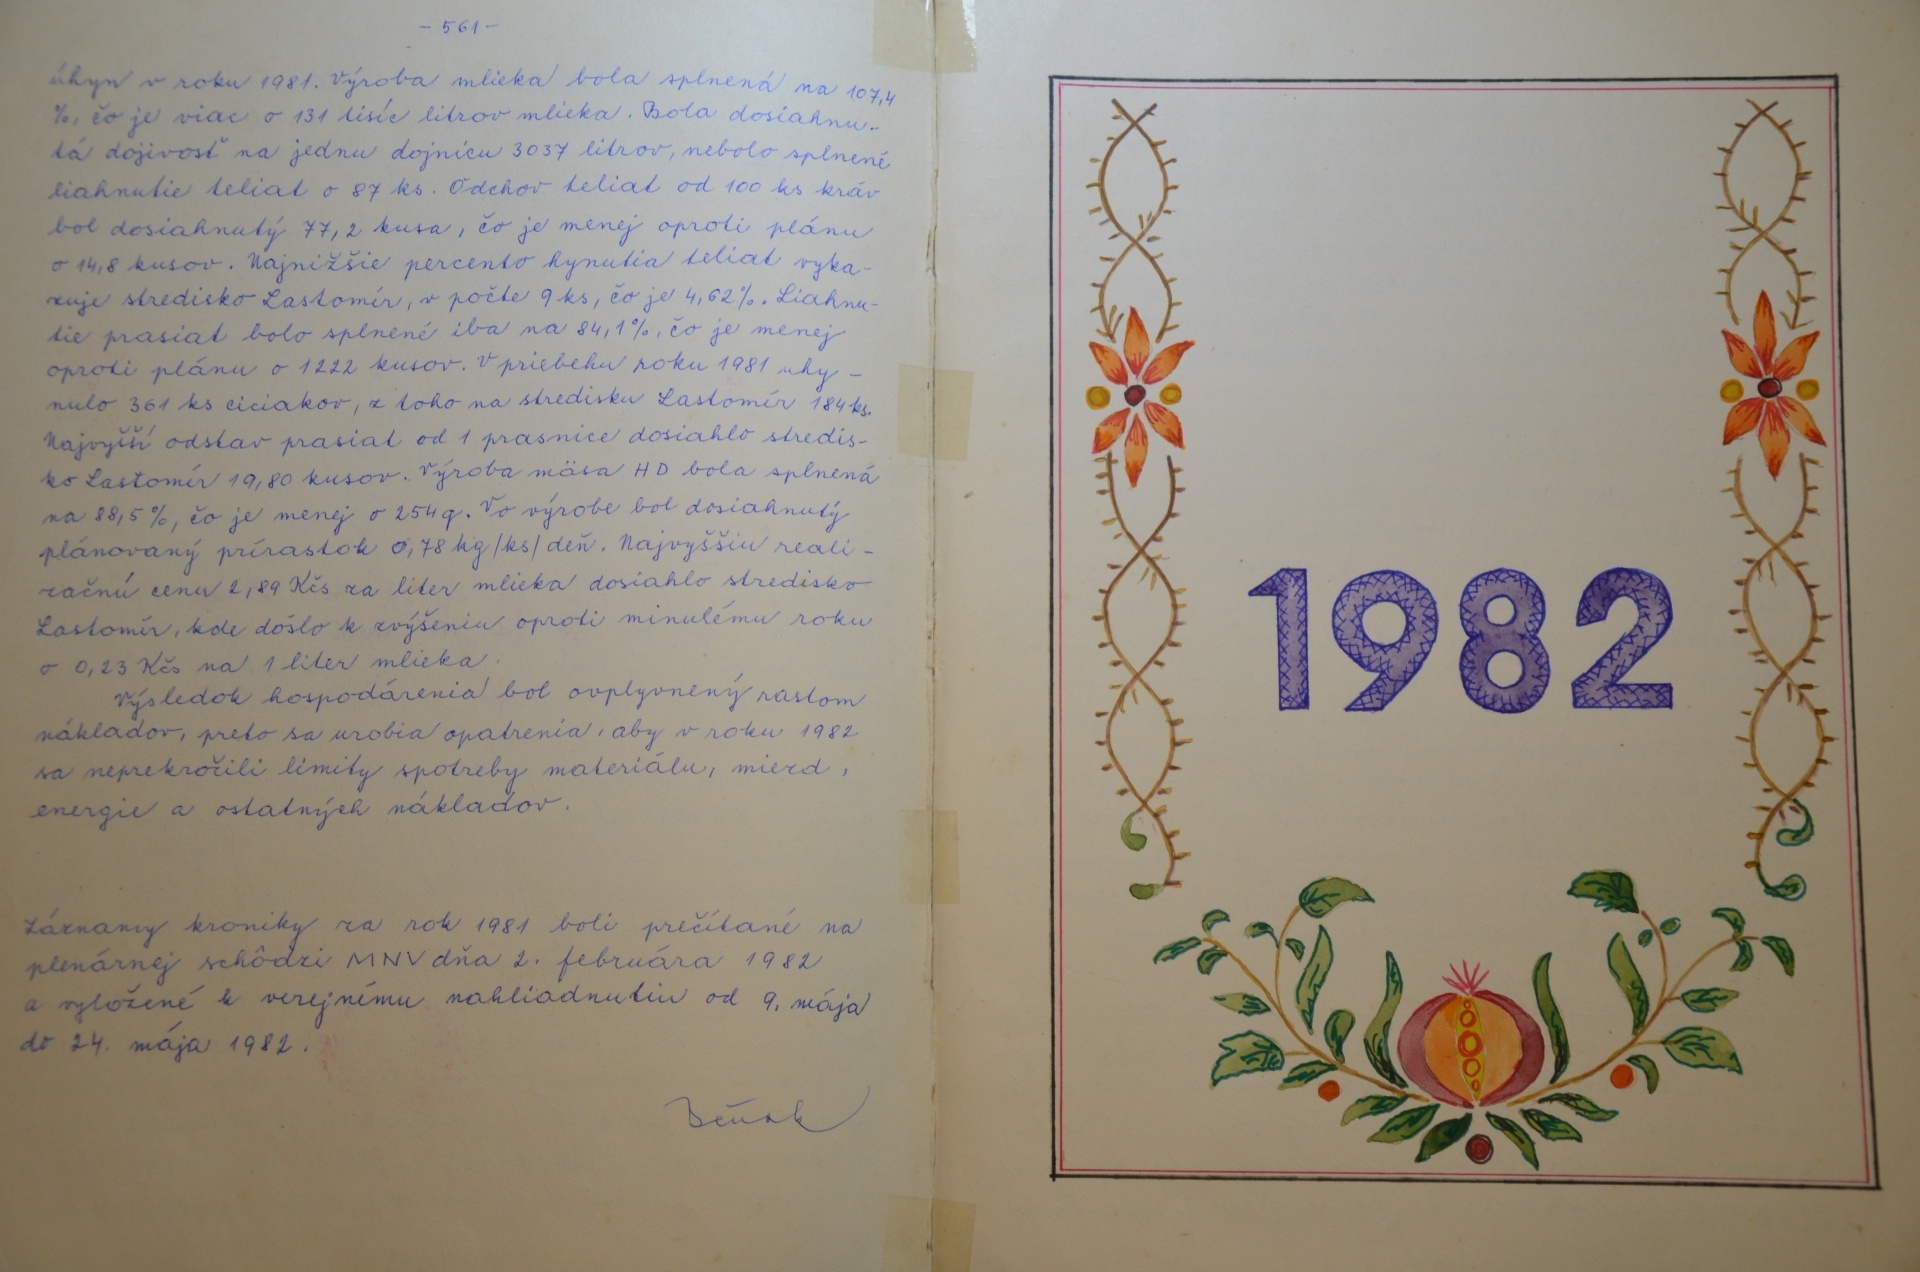 - 561 -
úhyn v roku 1981. Výroba mlieka bola splnená na 107,4
%, čo je viac o 131 tisíc litrov mlieka. Bola dosiahnu-
tá dojivosť na jednu dojnicu 3037 litrov, nebolo splnené
liahnutie teliat o 87 ks. Odchov teliat od 100 ks kráv
bol dosiahnutý 77,2 kusa, čo je menej oproti plánu
o 14,8 kusov. Najnižšie percento hynutia teliat vyka-
zuje stredisko Lastomír, v počte 9 ks, čo je 4,62%. Liahnu-
tie prasiat bolo splnené iba na 84,1%, čo je menej
oproti plánu o 1222 kusov. V priebehu roku 1981 uhy-
nulo 361 ks ciciakov, z toho na stredisku Lastomír 184 ks.
Najvyšší odstav prasiat od 1 prasnice dosiahlo stredis-
ko Lastomír 19,80 kusov. Výroba mäsa HD bola splnená
na 88,5%, čo je menej o 254 q. Vo výrobe bol dosiahnutý
plánovaný prírastok 0,78 kg/ks/deň. Najvyššiu reali-
začnú cenu 2,89 Kčs za liter mlieka dosiahlo stredisko
Lastomír, kde došlo k zvýšeniu oproti minulému roku
o 0,23 Kčs na 1 liter mlieka.
Výsledok hospodárenia bol ovplyvnený rastom
nákladov, preto sa urobia opatrenia, aby v roku 1982
sa neprekročili limity spotreby materiálu, miezd,
energie a ostatných nákladov.
Záznamy kroniky za rok 1981 boli prečítané na
plenárnej schôdzi MNV dňa 2. februára 1982
a vyložené k verejnému nahliadnutiu od 9. mája
do 24. mája 1982.
1982